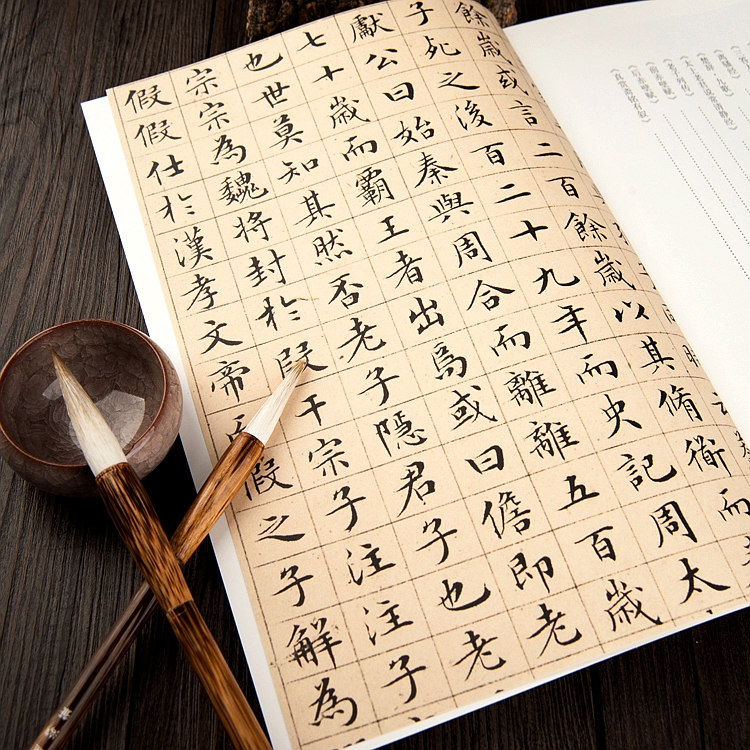 餘歲或言二百餘歲以其脩衜而
子死之後百二十九年而史記周太
獻公曰始秦與周合而離離五百歲
七十歲而霸王者出焉或曰儋即老
也世莫知其然否老子隱君子也老
宗宗為魏將封於段干宗子注注子
假假仕於漢孝文帝假之子解為